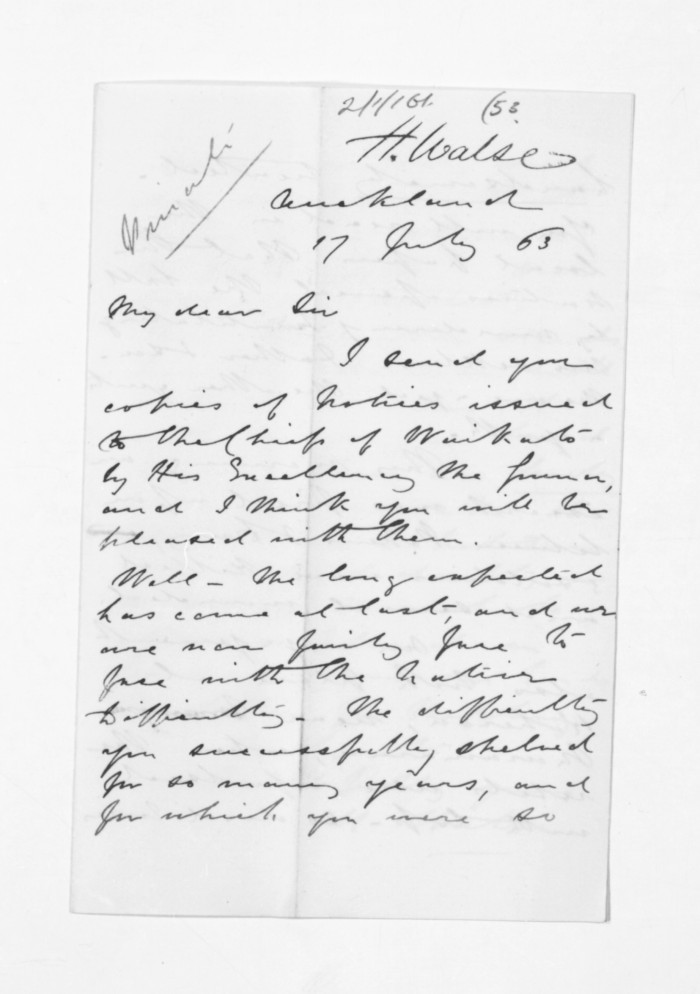 (53
H. Halse
Private
Auckland
17 July 63
My dear Sir
I send you
copies of Notices issued
to the Chiefs of Waikato
by His Excellency the Governor,
and I think you will be
pleased with them.
Well – the long expected
has come at last, and we
are now fairly face to
face with the Native
Difficulty – the difficulty
you successfully shelved
for so many years, and
for which you were so